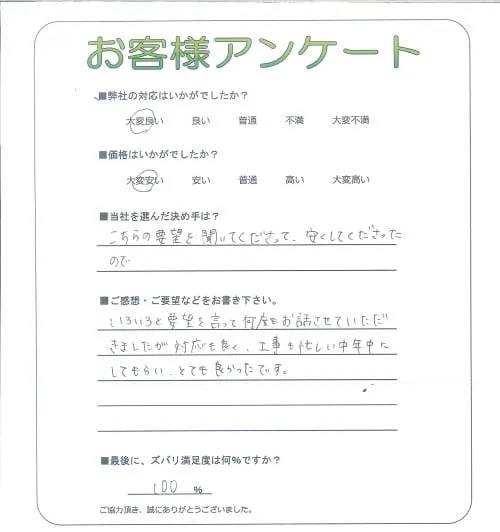 お客様アンケート
■弊社の対応はいかがでしたか？
大変良い 良い 普通 不満 大変不満
■価格はいかがでしたか？
大変安い 安い 普通 高い 大変高い
■当社を選んだ決め手は？
こちらの要望を聞いてくださって、安くしてくださった
ので
■ご感想・ご要望などをお書き下さい。
いろいろと要望を言って何度もお話させていただ
きましたが対応も良く、工事も忙しい中年中に
してもらい、とても良かったです。
■最後に、ズバリ満足度は何%ですか？
100 %
ご協力頂き、誠にありがとうございました。